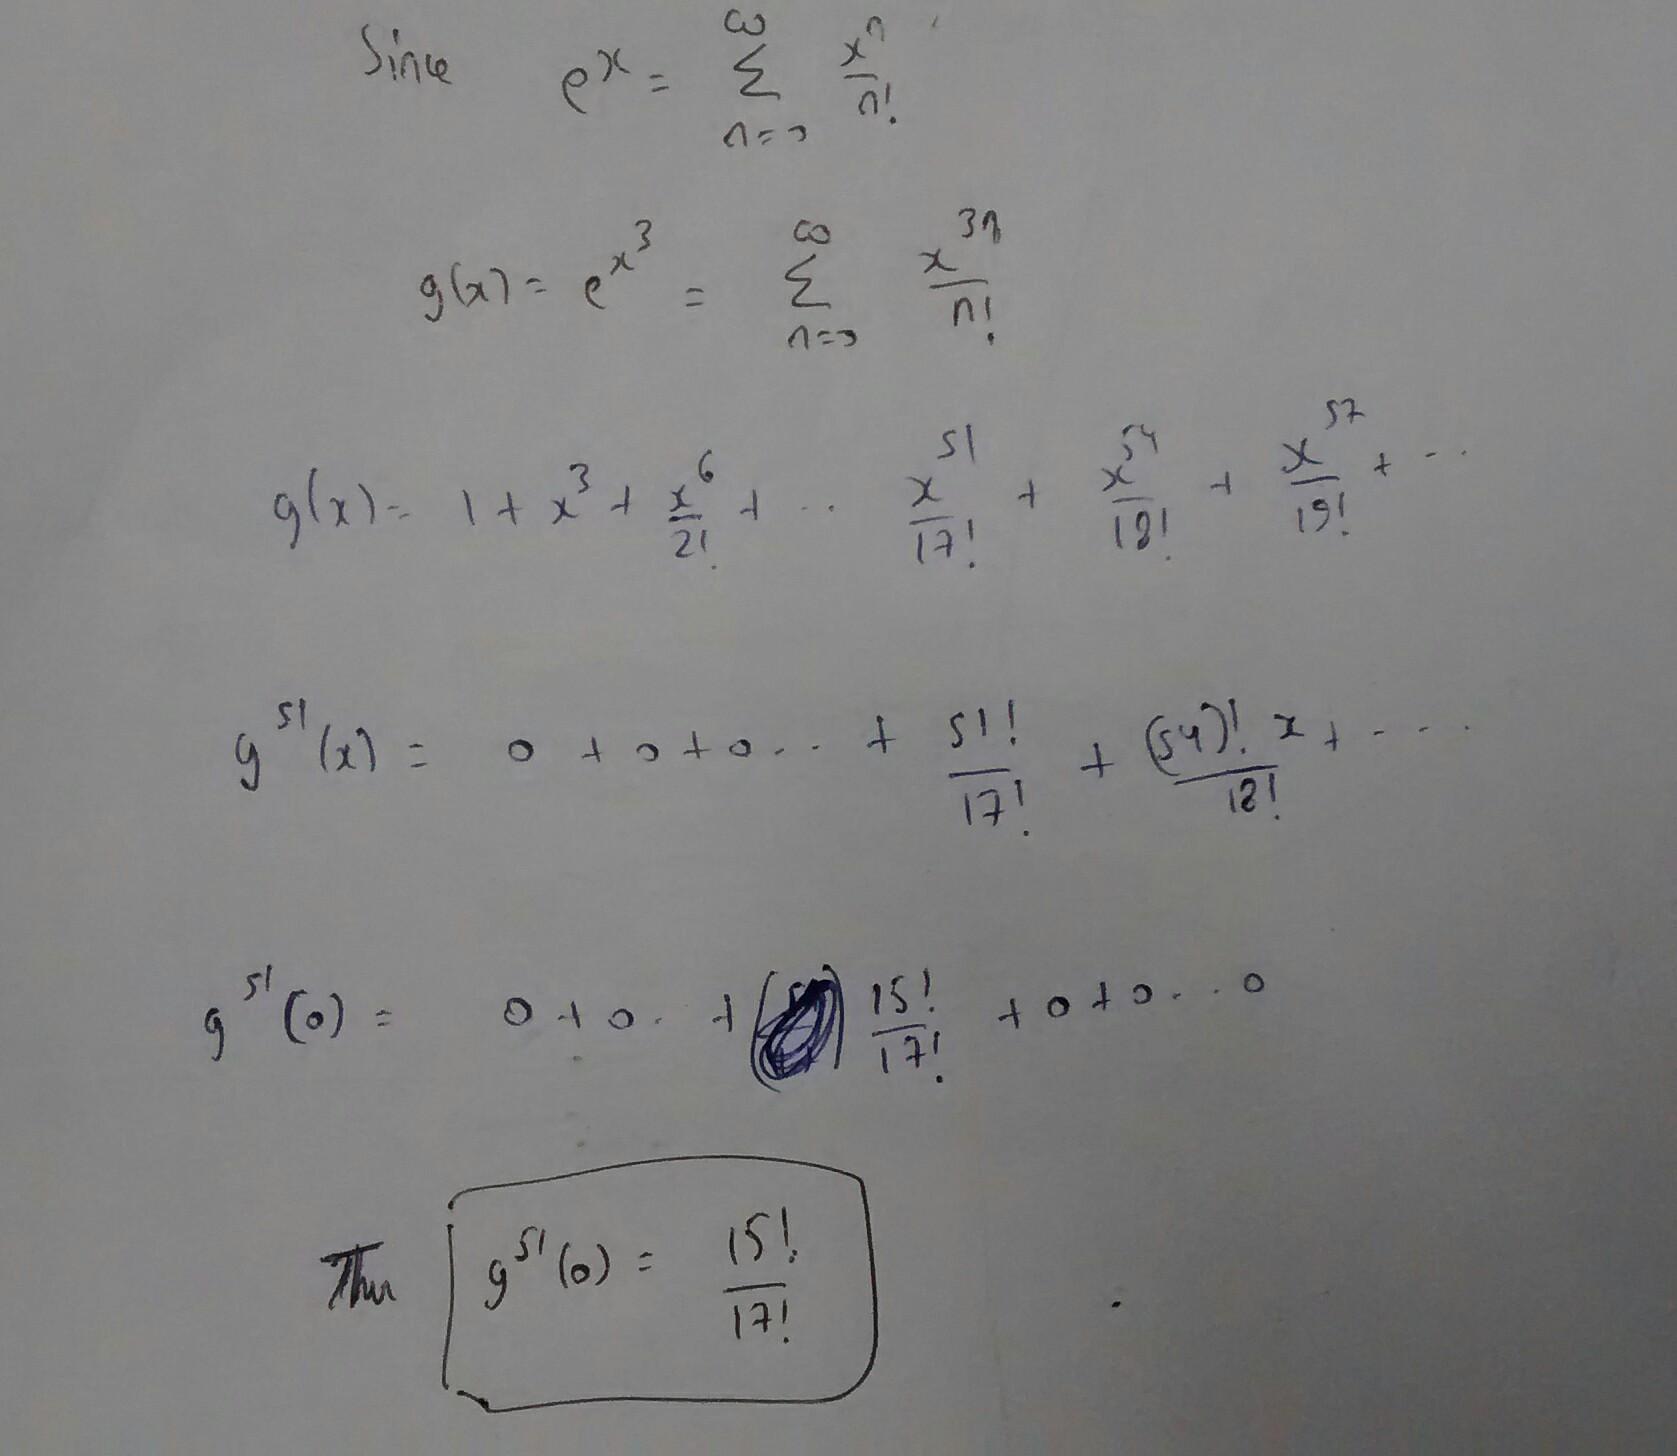 Since e^x = ∑_{n=0}^{∞} x^n/n!
g(x) = e^{x^3} = ∑_{n=0}^{∞} x^{3n}/n!
g(x) = 1 + x^3 + x^6/2! + .. x^51/17! + x^54/18! + x^57/19! + ...
g^51(x) = 0 + 0 + 0 ... + 51!/17! + (54)! x/18! + ....
g^51(0) = 0 + 0 . + 15!/17! + 0 + 0 ... 0
Thu g^51(0) = 15!/17!